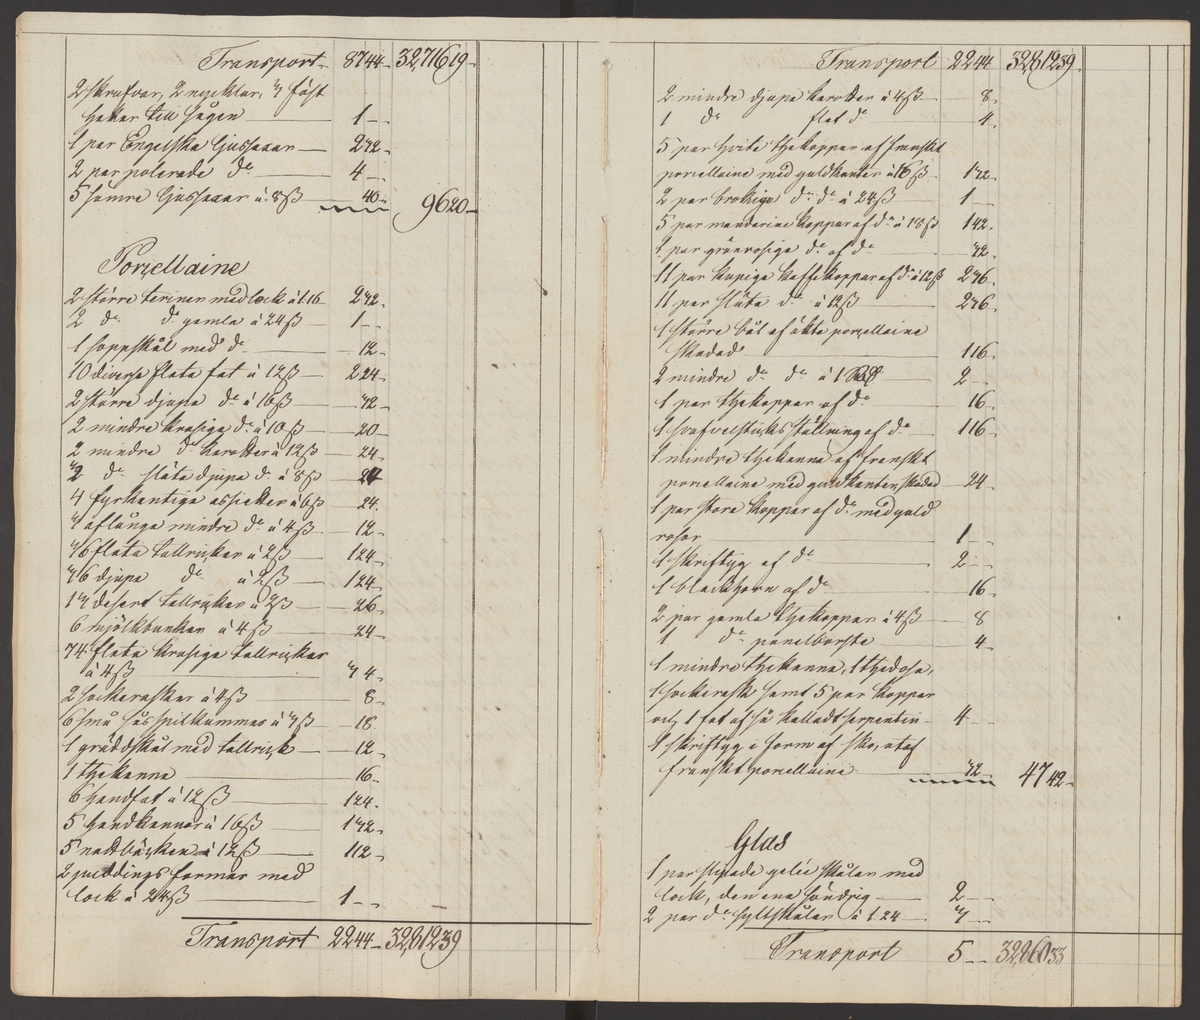 Transport 87 44 32,716 19
2 skrufvar, 2 nycklar, 4 föst
hakar till sågen 1 -
1 par Engelska Ljussaxar 2 32
2 par polerade do 4 -
5 sämre Ljussaxar à 8ß 40 96 20
Porzellaine
2 större teriner med lock à 1.16 2 32
2 do do gamla à 24ß 1 -
1 soppskål med do 12
10 diverse flata fat à 12ß 2 24
2 större djupa do à 16ß 32
2 mindre krusiga do à 10ß 20
2 mindre do karotter à 12ß 24
3 do släta djupa do à 8ß 24
4 fyrkantiga assietter à 6ß 24
3 aflånga mindre do à 4ß 12
36 flata tallrickar à 2ß 1 24
36 djupa do à 2ß 1 24
13 desert tallrickar à 2ß 26
6 mjölkbunkar à 4ß 24
74 flata krusiga tallrickar
2 sockeraskar à 4ß 8
6 små såsspilkummar à 3ß 18
1 gräddskål med tallrick 12
1 thekanna 16
6 handfat à 12ß 1 24
5 handkannor à 16ß 1 32
5 nattbäcken à 12ß 1 12
2 puddings formar med
lock à 24ß 1 -
Transport 22 44 32,812 39
Transport 22 44 32,812 39
2 mindre djupa karotter à 4ß 8
1 do flat do 4
5 par hvita thekoppar af franskt
porcellaine med guldkanter à 16ß 1 32
2 par brokiga do do à 24ß 1 -
5 par manderine koppar af do à 18ß 1 42
1 par grönrosiga do af do 32
11 par kupiga kaffekoppar af do à 12ß 2 36
11 par släta do à 12ß 2 36
1 större bål af äkta porzellaine
skadad 1 16
2 mindre do do à 1 Rd 2 -
1 par thekoppar af do 16
1 svafvelstickställning af do 1 16
1 mindre thekanna af franskt
porcellaine med guldkanter, skadad 24
1 par stora koppar af do med guld
rosor 1 -
1 skriftyg af do 2 -
1 bläckhorn af do 16
2 par gamla thekoppar à 4ß 8
1 do penelborste 4
1 mindre thekanna, 1 thedosa,
1 sockerask samt 5 par koppar
och 1 fat af så kalladt serpentin 4 -
1 skriftyg i form af sko, utaf
franskt porcellaine 32 47 42
Glas
1 par slipade gelée skålar med
lock, den ena söndrig 2 -
2 par do syltskålar à 1.24 3 -
Transport 5 - 32,860 33